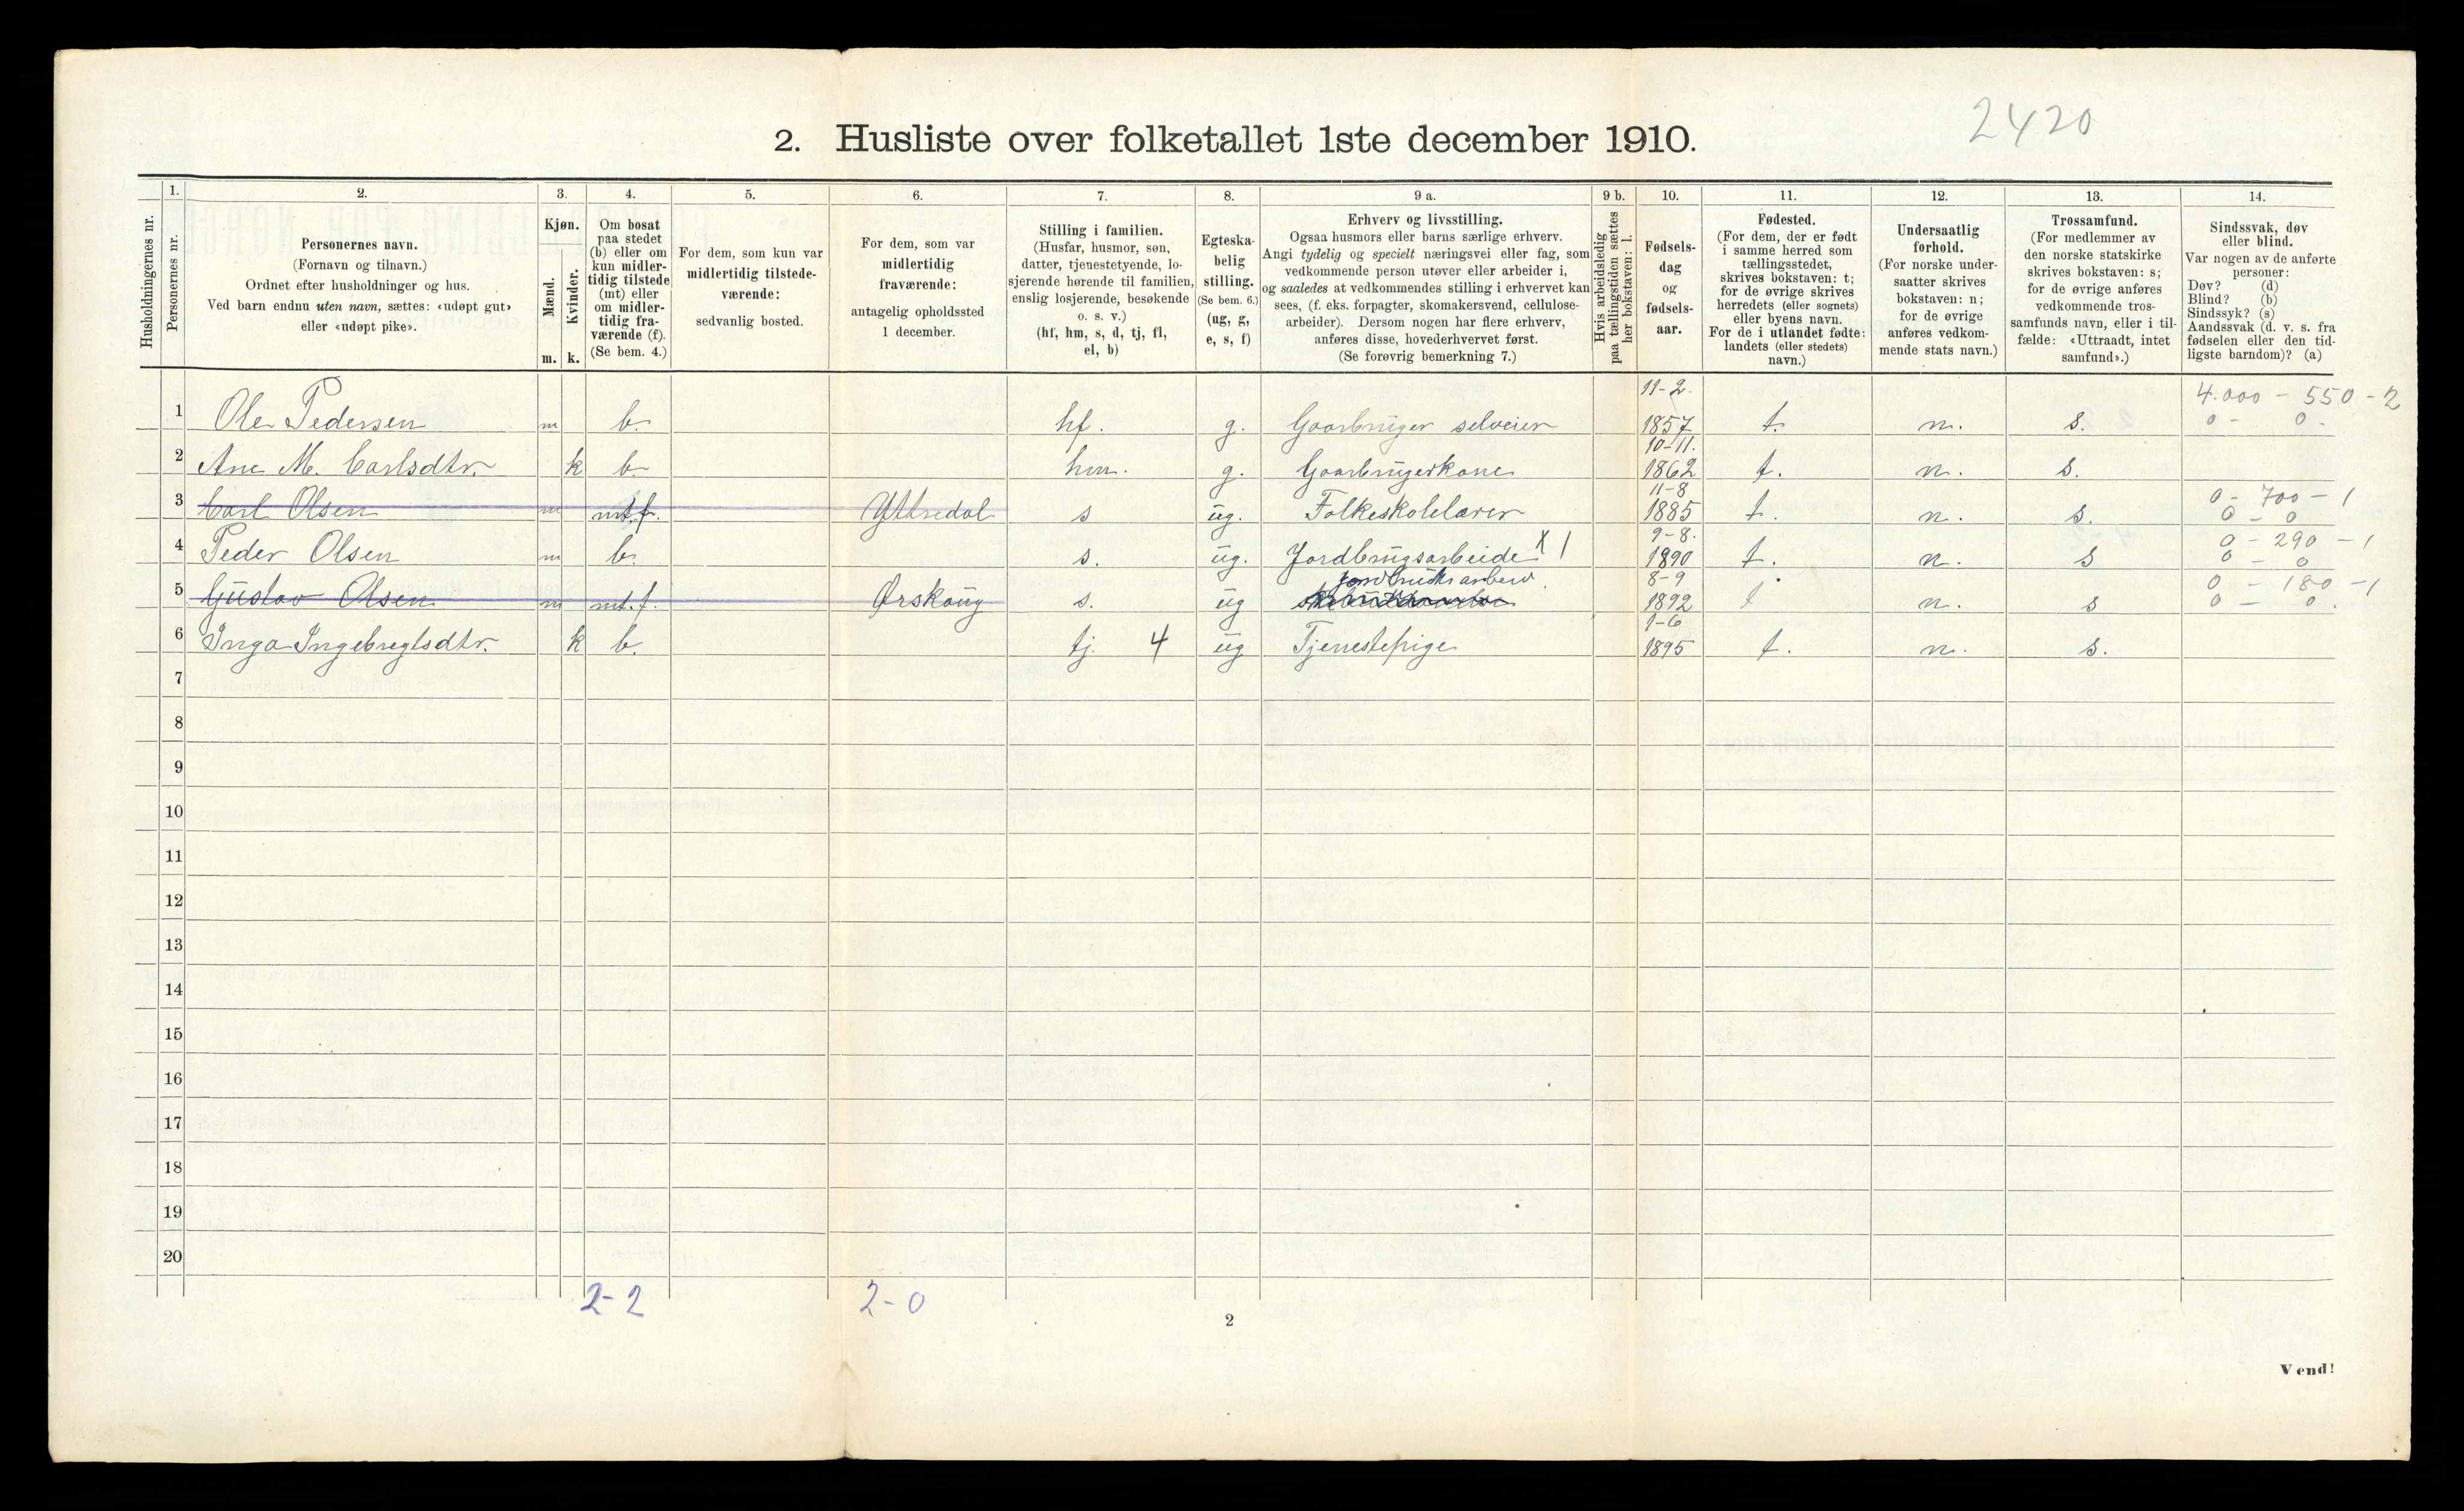 2420
2. Husliste over folketallet 1ste december 1910.
Husholdningernes nr.
1. Personernes nr.
2. Personernes navn. (Fornavn og tilnavn.) Ordnet efter husholdninger og hus. Ved barn endnu uten navn, sættes: «udøpt gut» eller «udøpt pike».
3. Kjøn. Mænd. m. Kvinder. k.
4. Om bosat paa stedet (b) eller om kun midlertidig tilstede (mt) eller om midlertidig fraværende (f). (Se bem. 4.)
5. For dem, som kun var midlertidig tilstedeværende: sedvanlig bosted.
6. For dem, som var midlertidig fraværende: antagelig opholdssted 1 december.
7. Stilling i familien. (Husfar, husmor, søn, datter, tjenestetyende, losjerende hørende til familien, enslig losjerende, besøkende o. s. v.) (hf, hm, s, d, tj, fl, el, b)
8. Egteskabelig stilling. (Se bem. 6.) (ug, g, e, s, f)
9 a. Erhverv og livsstilling. Ogsaa husmors eller barns særlige erhverv. Angi tydelig og specielt næringsvei eller fag, som vedkommende person utøver eller arbeider i, og saaledes at vedkommendes stilling i erhvervet kan sees, (f. eks. forpagter, skomakersvend, cellulosearbeider). Dersom nogen har flere erhverv, anføres disse, hovederhvervet først. (Se forøvrig bemerkning 7.)
9 b. Hvis arbeidsledig paa tællingstiden sættes her bokstaven: l.
10. Fødselsdag og fødselsaar.
11. Fødested. (For dem, der er født i samme herred som tællingsstedet, skrives bokstaven: t; for de øvrige skrives herredets (eller sognets) eller byens navn. For de i utlandet fødte: landets (eller stedets) navn.)
12. Undersaatlig forhold. (For norske undersaatter skrives bokstaven: n; for de øvrige anføres vedkommende stats navn.)
13. Trossamfund. (For medlemmer av den norske statskirke skrives bokstaven: s; for de øvrige anføres vedkommende trossamfunds navn, eller i tilfælde: «Uttraadt, intet samfund».)
14. Sindssvak, døv eller blind. Var nogen av de anførte personer: Døv? (d) Blind? (b) Sindssyk? (s) Aandssvak (d. v. s. fra fødselen eller den tidligste barndom)? (a)
1 Ole Pedersen m b. hf. g. Gaarbruger selveier 11-2. 1857 t. n. s. 4.000 - 550 - 2 0 - 0.
2 Ane M. Carlsdtr. k b. hm. g. Gaarbrugerkone 10-11. 1862 t. n. s.
3 Carl Olsen m mt. f. Yttredal s ug. Folkeskolelærer 11-8 1885 t. n. s. 0 - 700 - 1 0 - 0
4 Peder Olsen m b. s. ug. Jordbrugsarbeide X 1 9-8. 1890 t. n. s 0 - 290 - 1 0 - 0
5 Gustav Olsen m mt. f. Ørskoug s. ug 8-9 1892 t n. s 0 - 180 - 1 0 - 0.
6 Inga Ingebregtsdtr. k b. tj. 4 ug Tjenestepige 1-6 1895 t. n. s.
7
8
9
10
11
12
13
14
15
16
17
18
19
20
2-2 2-0
2
Vend!